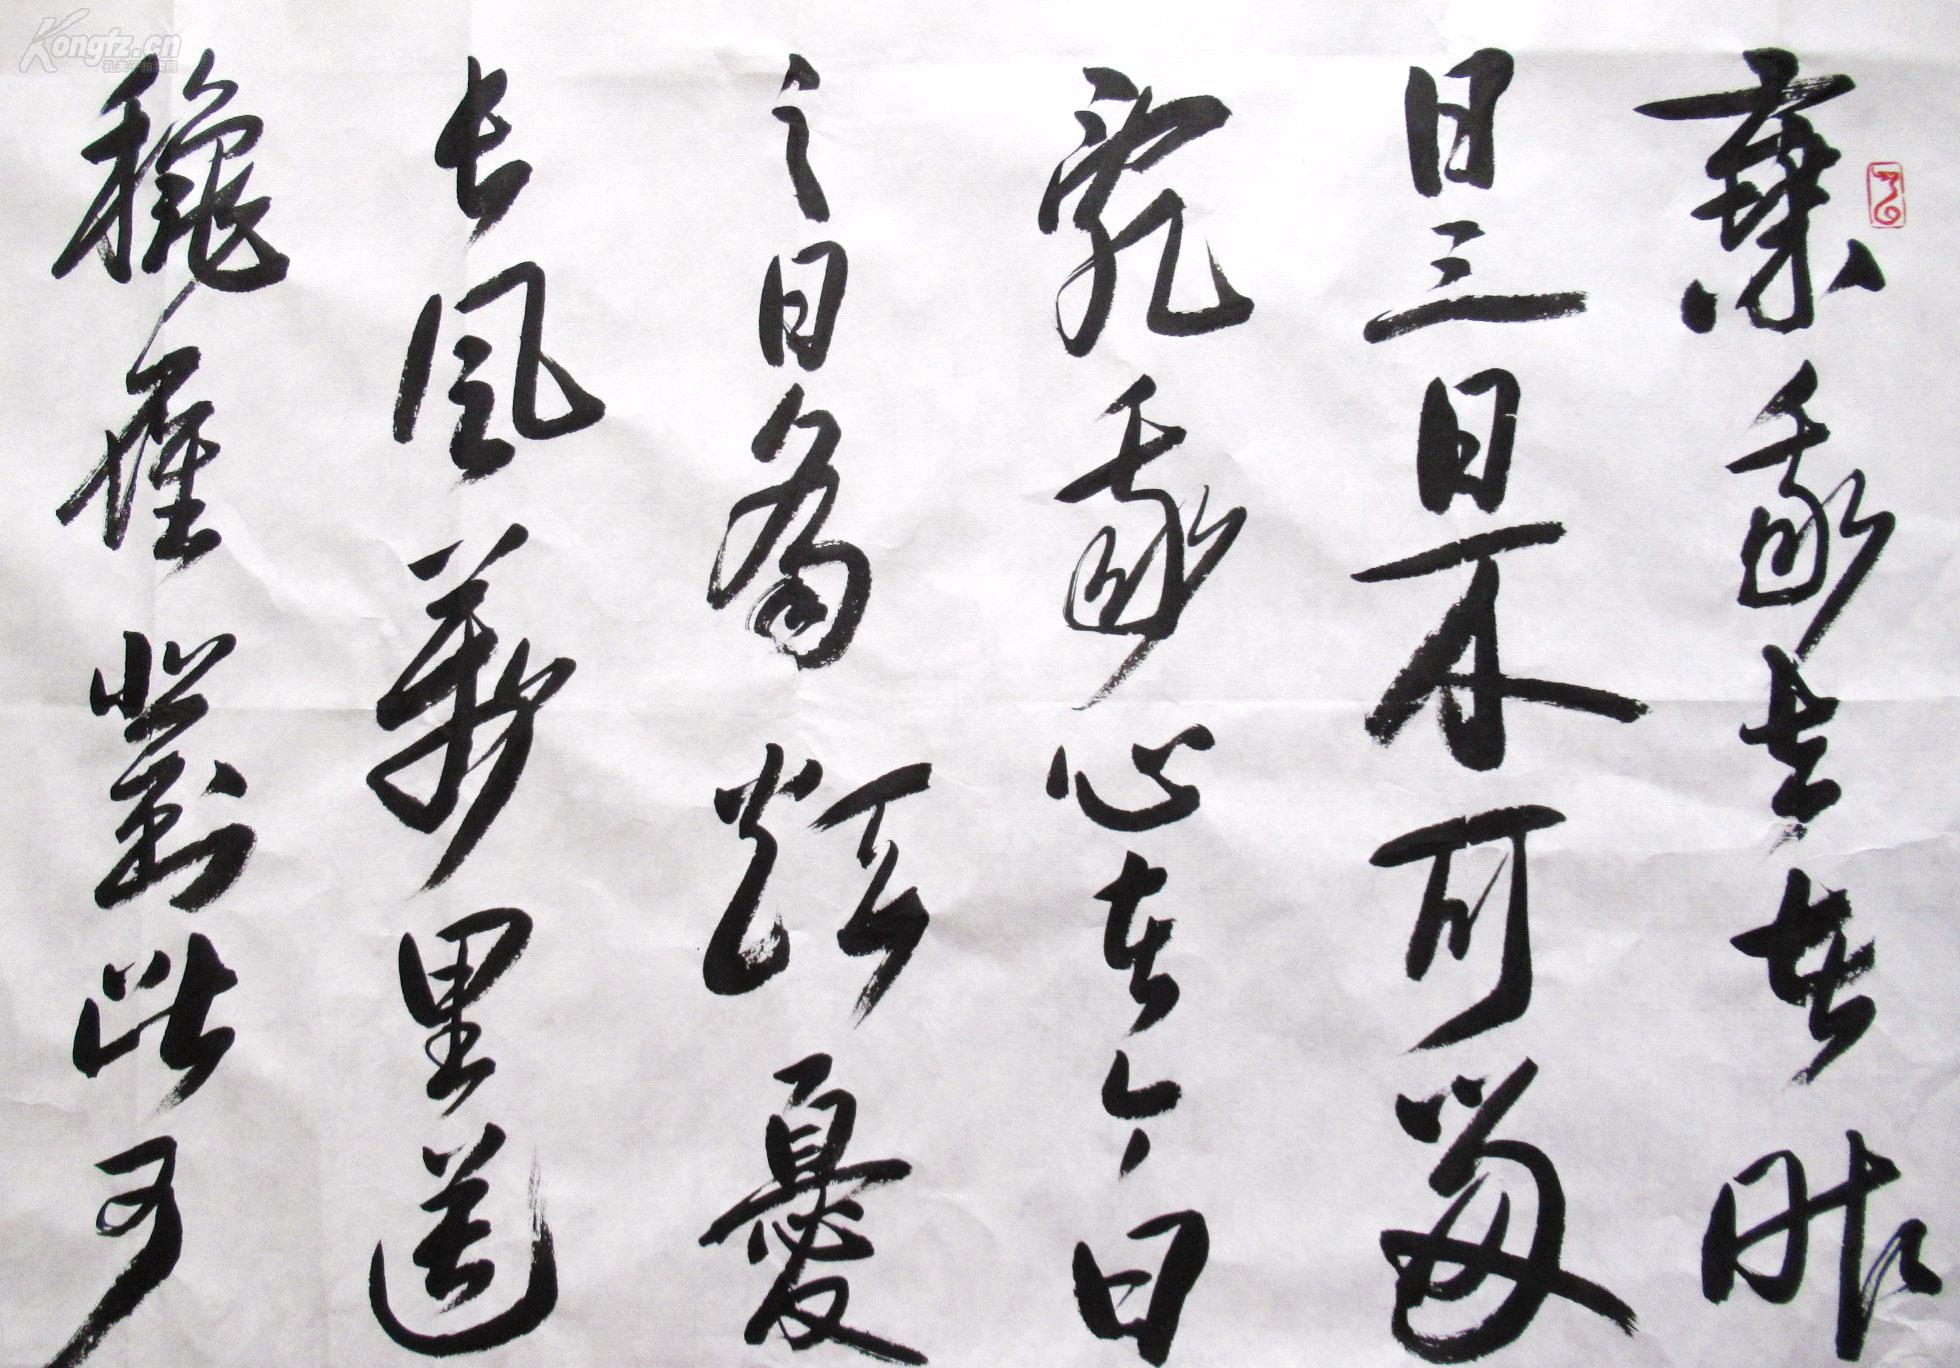 棄我去者昨
日之日不可留
亂我心者今日
之日多煩憂
長風萬里送
龝雁對此可
Kongfz.cn